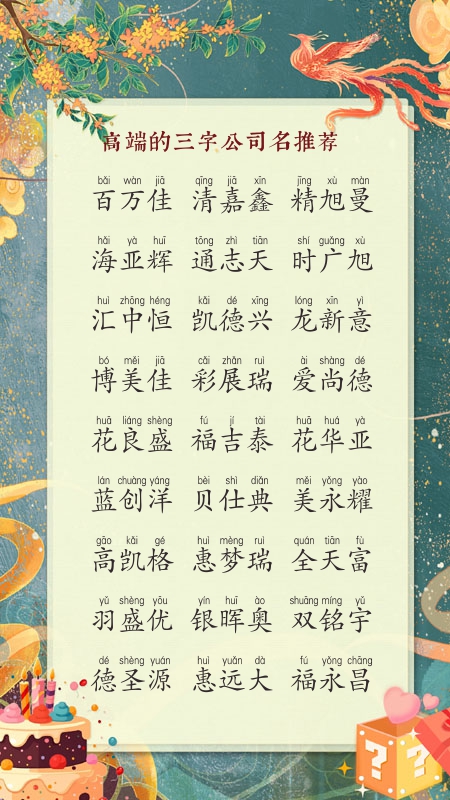 高端的三字公司名推荐
bǎi wàn jiā qīng jiā xīn jīng xù màn
百万佳 清嘉鑫 精旭曼
hǎi yà huī tōng zhì tiān shí guǎng xù
海亚辉 通志天 时广旭
huì zhōng héng kǎi dé xīng lóng xīn yì
汇中恒 凯德兴 龙新意
bó měi jiā cǎi zhǎn ruì ài shàng dé
博美佳 彩展瑞 爱尚德
huā liáng shèng fú jí tài huā huá yà
花良盛 福吉泰 花华亚
lán chuàng yáng bèi shì diǎn měi yǒng yào
蓝创洋 贝仕典 美永耀
gāo kǎi gé huì mèng ruì quán tiān fù
高凯格 惠梦瑞 全天富
yǔ shèng yōu yín huī ào shuāng míng yǔ
羽盛优 银晖奥 双铭宇
dé shèng yuán huì yuǎn dà fú yǒng chāng
德圣源 惠远大 福永昌
? ?